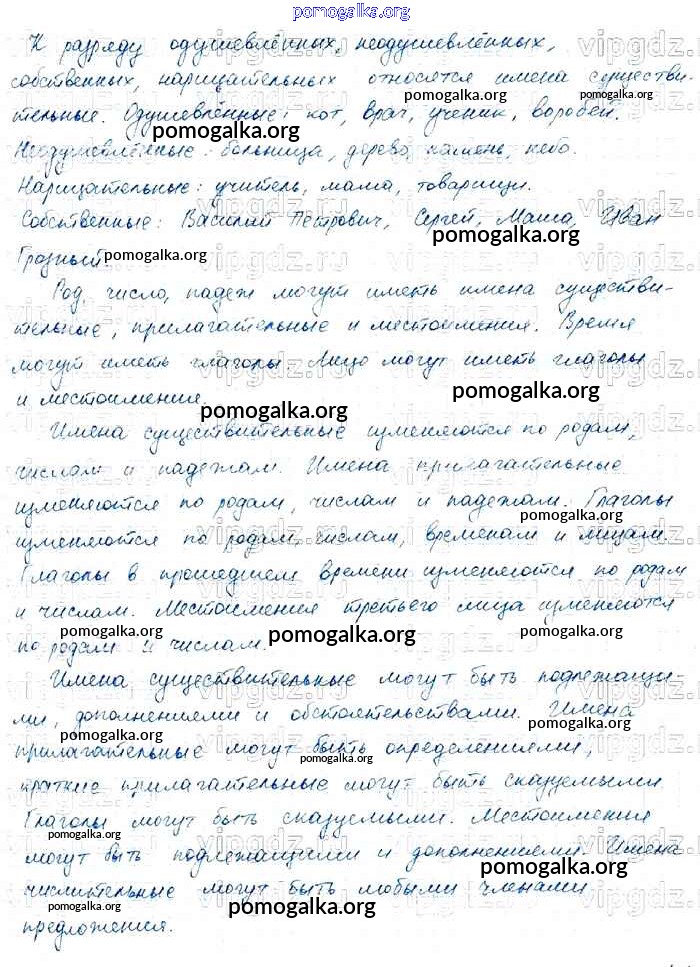 pomogalka.org
К разряду одушевлённых, неодушевлённых,
собственных, нарицательных относятся имена существи-
тельные. Одушевлённые: кот, врач, ученик, воробей.
Неодушевлённые: больница, дерево, камень, небо.
Нарицательные: учитель, мама, товарищи.
Собственные: Василий Петрович, Сергей, Маша, Иван
Грозный.
Род, число, падеж могут иметь имена существи-
тельные, прилагательные и местоимения. Время
могут иметь глаголы. Лицо могут иметь глаголы
и местоимения.
Имена существительные изменяются по родам,
числам и падежам. Имена прилагательные
изменяются по родам, числам и падежам. Глаголы
изменяются по родам, числам, временам и лицам.
Глаголы в прошедшем времени изменяются по родам
и числам. Местоимения третьего лица изменяются
по родам и числам.
Имена существительные могут быть подлежащи-
ми, дополнениями и обстоятельствами. Имена
прилагательные могут быть определениями,
краткие прилагательные могут быть сказуемыми.
Глаголы могут быть сказуемыми. Местоимения
могут быть подлежащими и дополнениями. Имена
числительные могут быть любыми членами
предложения.